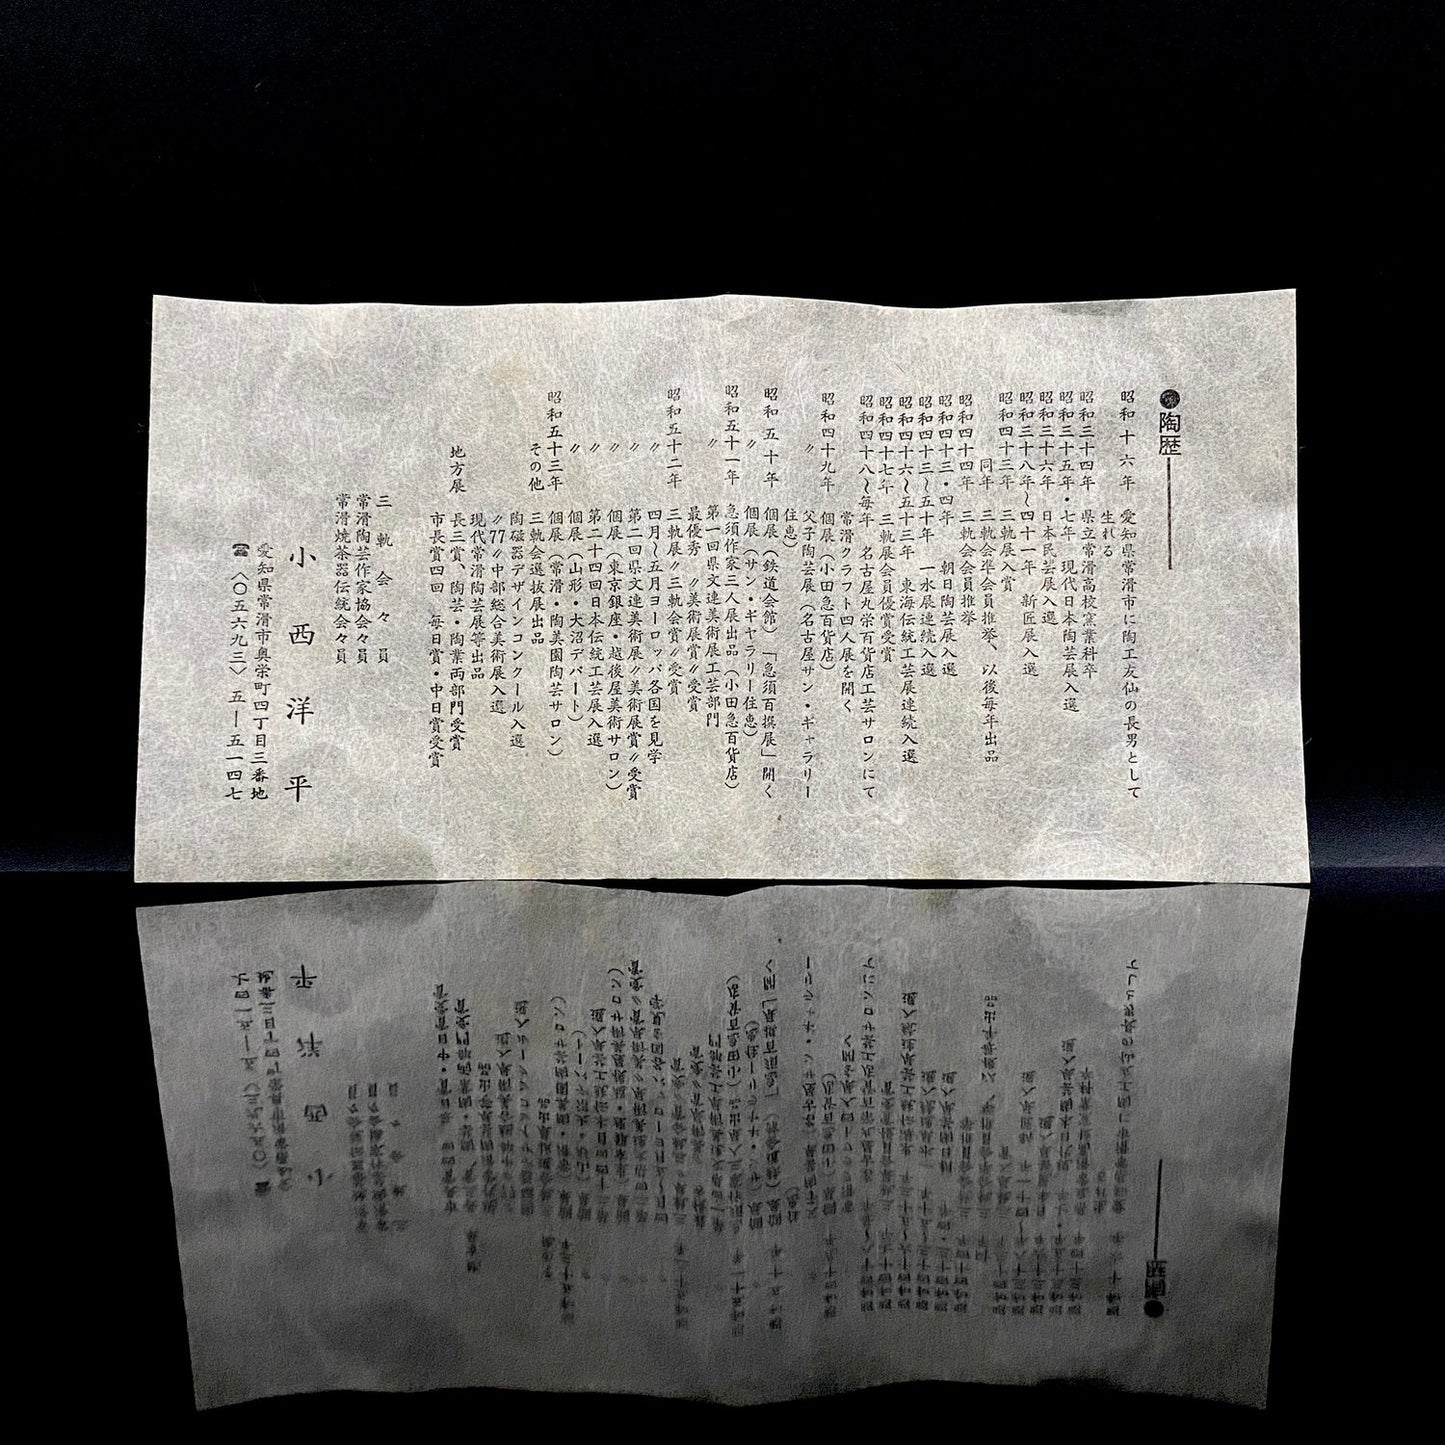 ●陶歴
昭和十六年 愛知県常滑市に陶工友仙の長男として
生れる
昭和三十四年 県立常滑高校窯業科卒
昭和三十五年・七年 現代日本陶芸展入選
昭和三十六年 日本民芸展入選
昭和三十八年〜四十一年 新匠展入選
昭和四十三年 三軌展入賞
同年 三軌会准会員推挙、以後毎年出品
昭和四十四年 三軌会会員推挙
昭和四十三・四年 朝日陶芸展入選
昭和四十三〜五十年 一水展連続入選
昭和四十六〜五十三年 東海伝統工芸展連続入選
昭和四十七年 三軌展会員優賞受賞
昭和四十八〜毎年 名古屋丸栄百貨店工芸サロンにて
常滑クラフト四人展を開く
昭和四十九年 個展(小田急百貨店)
〃 父子陶芸展(名古屋サン・ギャラリー
住恵)
昭和五十年 個展(鉄道会館)「急須百撰展」開く
〃 個展(サン・ギャラリー住恵)
昭和五十一年 急須作家三人展出品(小田急百貨店)
〃 第一回県文連美術展工芸部門
最優秀〃美術展賞〃受賞
昭和五十二年 三軌展〃三軌会賞〃受賞
〃 四月〜五月ヨーロッパ各国を見学
〃 第二回県文連美術展〃美術展賞〃受賞
〃 個展(東京銀座・越後屋美術サロン)
〃 第二十四回日本伝統工芸展入選
〃 個展(山形・大沼デパート)
昭和五十三年 個展(常滑・陶美園陶芸サロン)
その他 三軌会選抜展出品
陶磁器デザインコンクール入選
〃77〃中部総合美術展入選
現代常滑陶芸展等出品
地方展 長三賞、陶芸・陶業両部門受賞
市長賞四回 毎日賞・中日賞受賞
三軌会々員
常滑陶芸作家協会々員
常滑焼茶器伝統会々員
小西洋平
愛知県常滑市奥栄町四丁目三番地
☎〈〇五六九三〉五ー五一四七